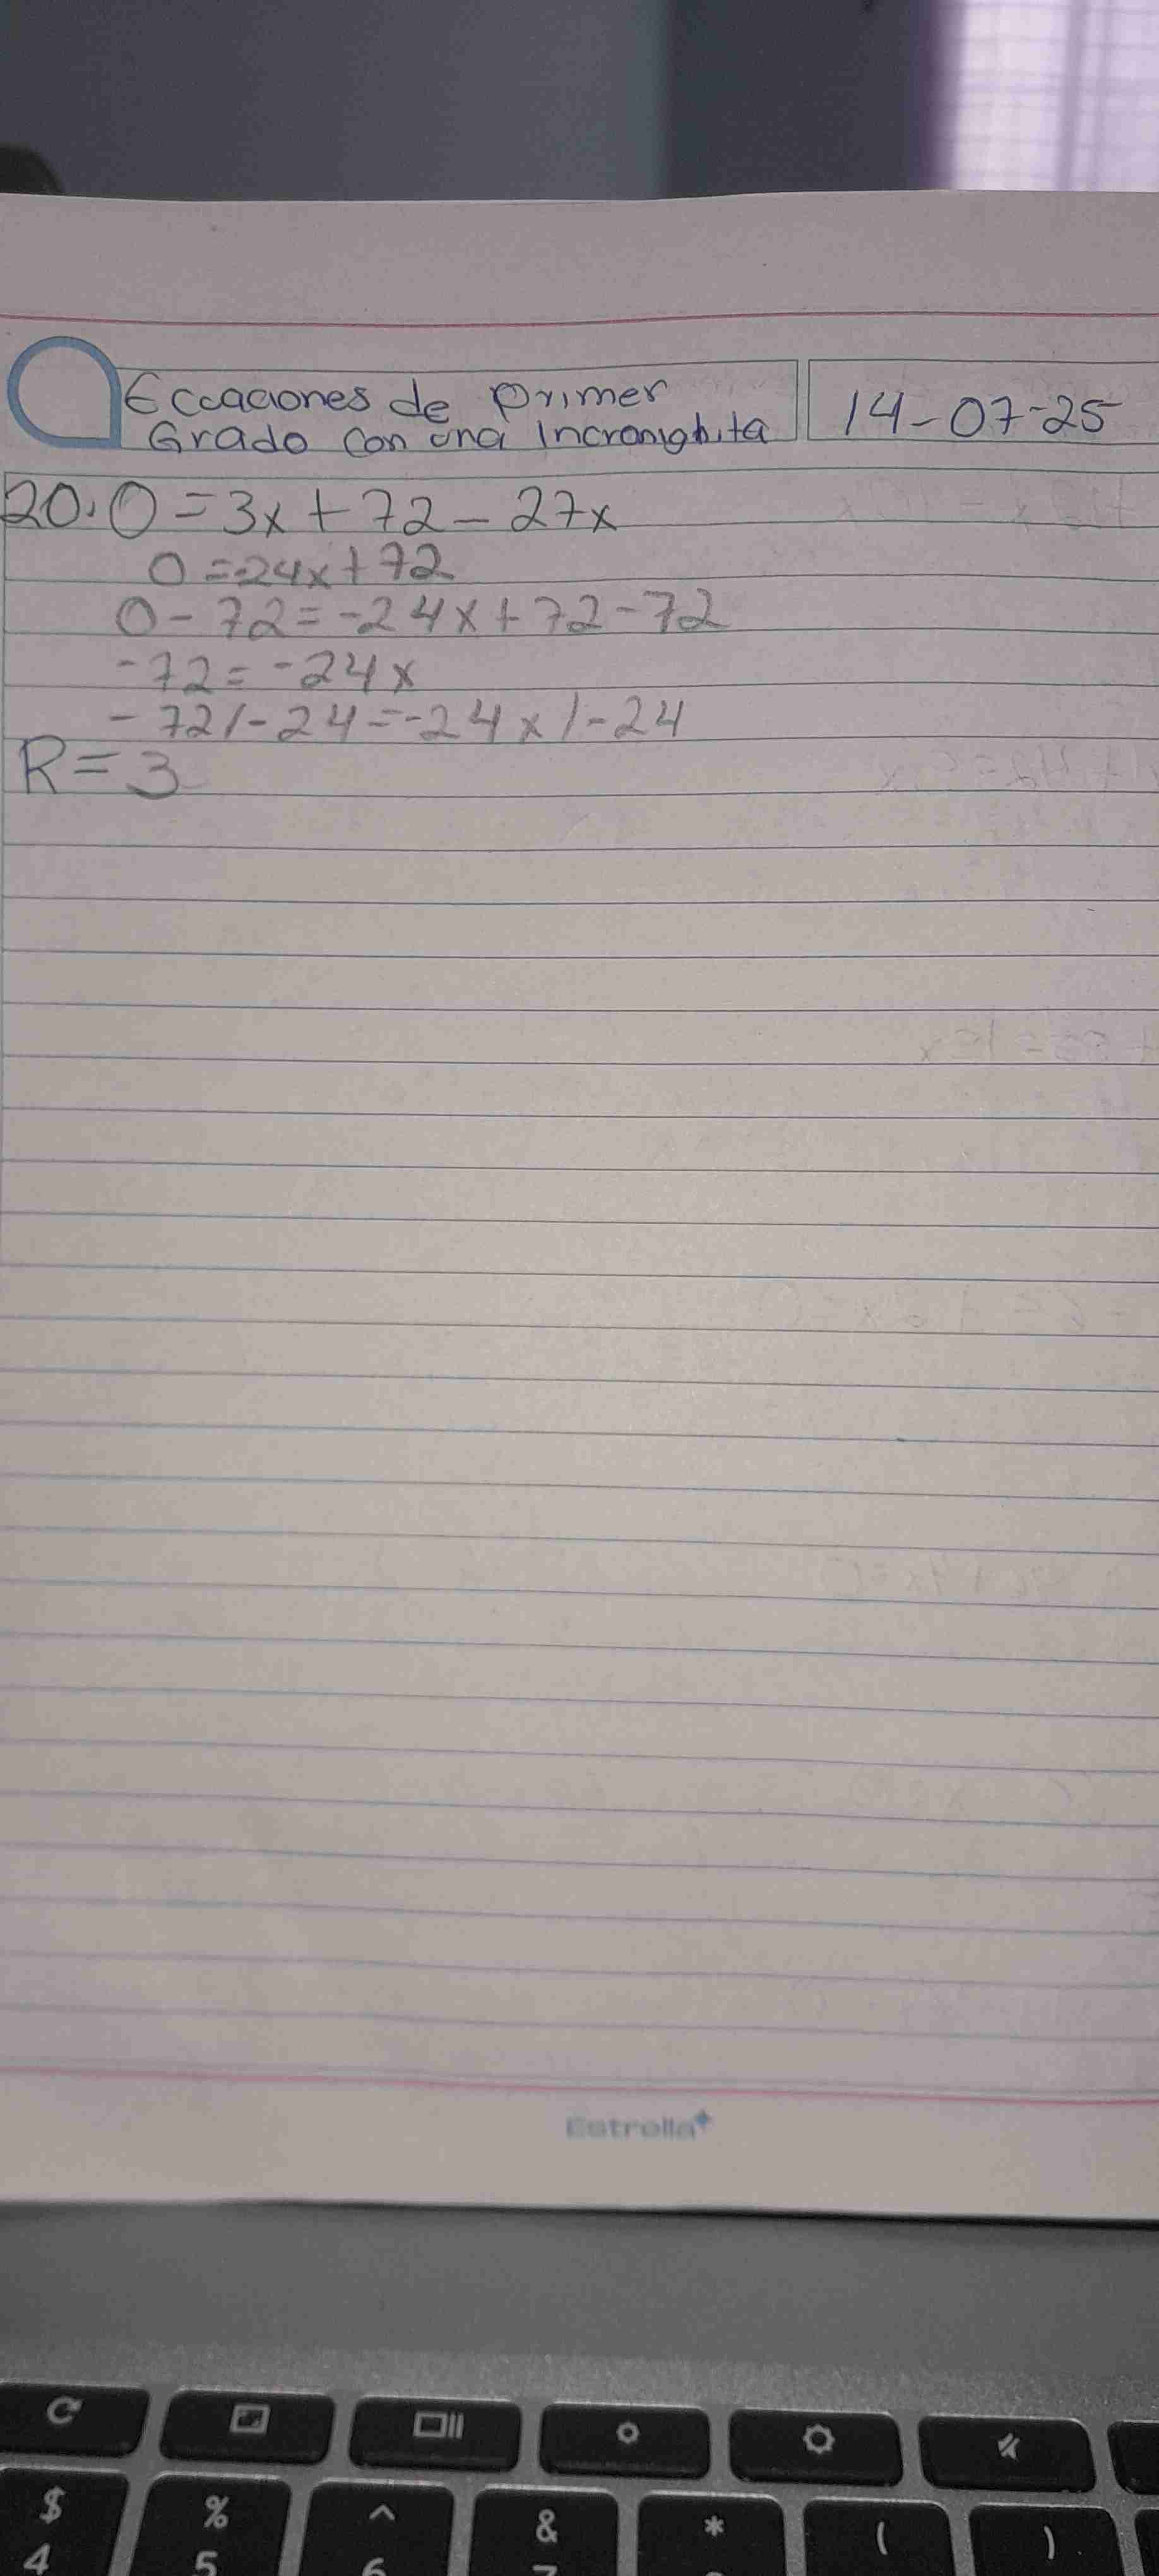 Ecuaciones de Primer
Grado con una Incronighita
14-07-25
20. 0 = 3x + 72 - 27x
0 = -24x + 72
0 - 72 = -24x + 72 - 72
-72 = -24x
-72 / -24 = -24x / -24
R = 3
Estrella
$
4
%
5
^
6
&
7
*
(
)